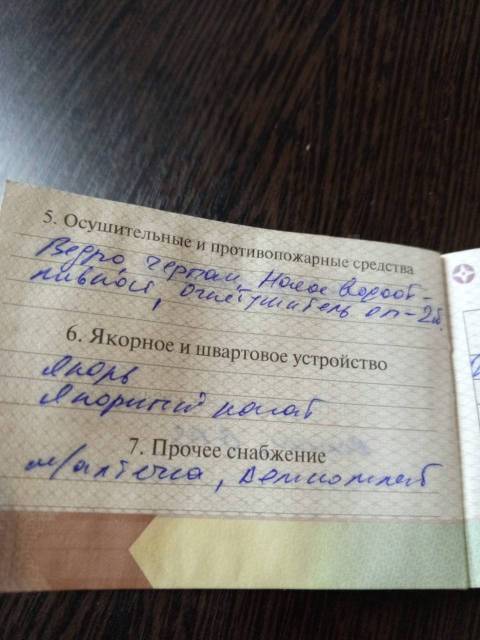 5. Осушительные и противопожарные средства
Ведро, черпак, Насос водоот-
ливной, огнетушитель оп-2
6. Якорное и швартовое устройство
Якорь
Якорный канат
7. Прочее снабжение
м/аптечка,